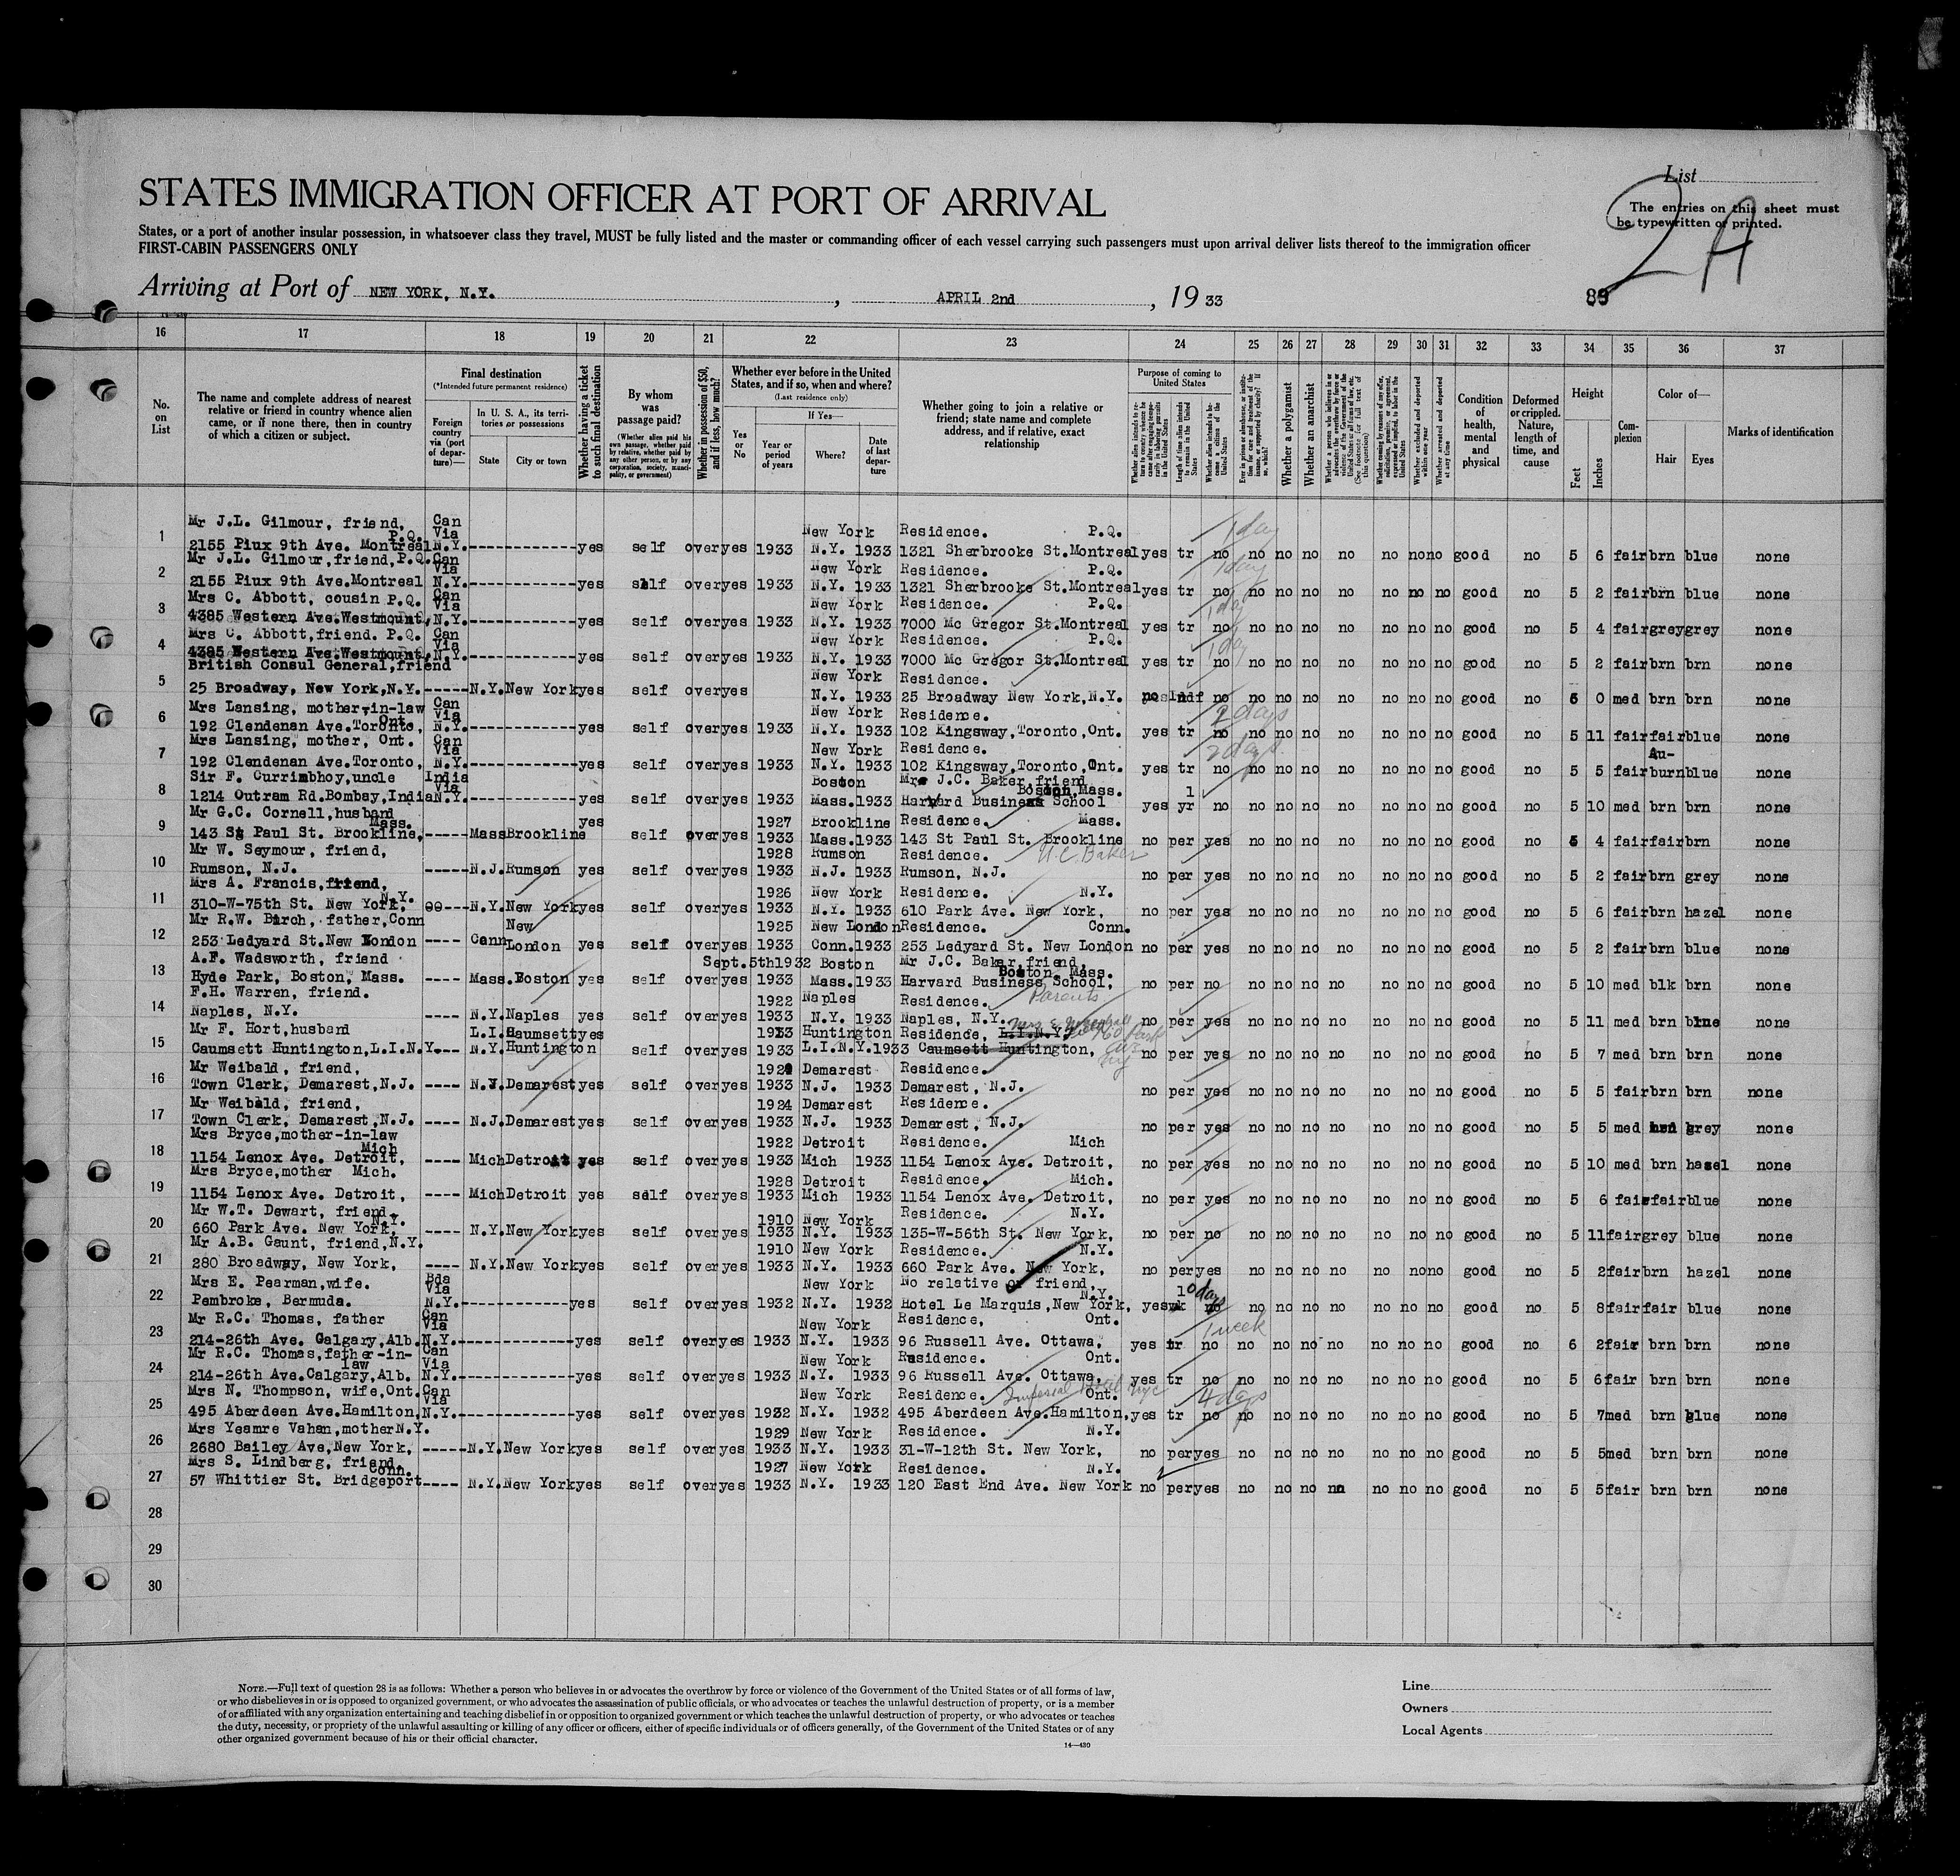 List
2A
The entries on this sheet must
be typewritten or printed.
STATES IMMIGRATION OFFICER AT PORT OF ARRIVAL
States, or a port of another insular possession, in whatsoever class they travel, MUST be fully listed and the master or commanding officer of each vessel carrying such passengers must upon arrival deliver lists thereof to the immigration officer
FIRST-CABIN PASSENGERS ONLY
Arriving at Port of NEW YORK, N.Y. , APRIL 2nd , 1933
16 17 18 19 20 21 22 23 24 25 26 27 28 29 30 31 32 33 34 35 36 37
No. on List
The name and complete address of nearest relative or friend in country whence alien came, or if none there, then in country of which a citizen or subject.
Final destination
(*Intended future permanent residence)
Foreign country via (port of departure)—
In U. S. A., its territories or possessions
State
City or town
Whether having a ticket to such final destination
By whom was passage paid?
(Whether alien paid his own passage, whether paid by relative, whether paid by any other person, or by any corporation, society, municipality, or government)
Whether in possession of $50, and if less, how much?
Whether ever before in the United States, and if so, when and where?
(Last residence only)
Yes or No
If Yes—
Year or period of years
Where?
Date of last departure
Whether going to join a relative or friend; state name and complete address, and if relative, exact relationship
Purpose of coming to United States
Length of time alien intends to remain in the United States
Whether alien intends to become a citizen of the United States
Whether a polygamist
Whether an anarchist
Whether excluded and deported within one year
Whether arrested and deported at any time
Condition of health, mental and physical
Deformed or crippled. Nature, length of time, and cause
Height
Feet
Inches
Complexion
Color of—
Hair
Eyes
Marks of identification
Mr J.L. Gilmour, friend, Can New York Residence. P.Q. 1 day
1 P.Q. Via
2155 Piux 9th Ave. Montreal N.Y.-------------yes self over yes 1933 N.Y. 1933 1321 Sherbrooke St.Montreal yes tr no no no no no no no no good no 5 6 fair brn blue none
Mr J.L. Gilmour,friend,P.Q. Can New York Residence. P.Q. 1 day
2 Via
2155 Piux 9th Ave.Montreal N.Y.-------------yes self over yes 1933 N.Y. 1933 1321 Sherbrooke St.Montreal yes tr no no no no no no no no good no 5 2 fair brn blue none
Mrs C. Abbott, cousin P.Q. Can New York Residence. P.Q. 1 day
3 Via
4385 Western Ave.Westmount, N.Y.-------------yes self over yes 1933 N.Y. 1933 7000 Mc Gregor St.Montreal yes tr no no no no no no no no good no 5 4 fair grey grey none
Mrs C. Abbott,friend. P.Q. Can New York Residence. P.Q. 1 day
4 Via
4385 Western Ave.Westmount, N.Y.-------------yes self over yes 1933 N.Y. 1933 7000 Mc Gregor St.Montreal yes tr no no no no no no no no good no 5 2 fair brn brn none
British Consul General,friend New York Residence.
5 25 Broadway, New York,N.Y.-----N.Y.New York yes self over yes N.Y. 1933 25 Broadway New York,N.Y. no Indf no no no no no no no no good no 6 0 med brn brn none
Mrs Lansing, mother-in-law Can New York Residence. 2 days
6 Ont. Via
192 Clendenan Ave.Toronto, N.Y.-------------yes self over yes 1933 N.Y. 1933 102 Kingsway,Toronto,Ont. yes tr no no no no no no no no good no 5 11 fair fair blue none
Mrs Lansing, mother, Ont. Can New York Residence. 2 days Au-
7 Via
192 Clendenan Ave.Toronto, N.Y.-------------yes self over yes 1933 N.Y. 1933 102 Kingsway,Toronto,Ont. yes tr no no no no no no no no good no 5 5 fair burn blue none
Sir F. Currimbhoy,uncle India Boston Mr J.C. Baker,friend
8 Via Boston,Mass. 1
1214 Outram Rd.Bombay,India N.Y.-------------yes self over yes 1933 Mass.1933 Harvard Business School yes yr no no no no no no no no good no 5 10 med brn brn none
Mr G.C. Cornell,husband yes 1927 Brookline Residence. Mass.
9 Mass.
143 St Paul St. Brookline,-----Mass Brookline self over yes 1933 Mass.1933 143 St Paul St. Brookline no per yes no no no no no no no good no 5 4 fair fair brn none
Mr W. Seymour, friend, 1928 Rumson Residence. H.C. Baker
10 Rumson, N.J. -----N.J.Rumson yes self over yes 1933 N.J. 1933 Rumson, N.J. no per yes no no no no no no no good no 5 2 fair brn grey none
Mrs A. Francis,friend, 1926 New York Residence. N.Y.
11 N.Y.
310-W-75th St. New York, ----N.Y.New York yes self over yes 1933 N.Y. 1933 610 Park Ave. New York, no per yes no no no no no no no good no 5 6 fair brn hazel none
Mr R.W. Birch, father,Conn New 1925 New London Residence. Conn.
12 253 Ledyard St.New London ---- Conn London yes self over yes 1933 Conn.1933 253 Ledyard St. New London no per yes no no no no no no no good no 5 2 fair brn blue none
A.F. Wadsworth, friend Sept.5th1932 Boston Mr J.C. Baker,friend,
13 Boston, Mass.
Hyde Park, Boston, Mass. ---- Mass.Boston yes self over yes 1933 Mass.1933 Harvard Business School, no per no no no no no no no no good no 5 10 med blk brn none
F.H. Warren, friend. 1922 Naples Residence. Parents
14 Naples, N.Y. ---- N.Y.Naples yes self over yes 1933 N.Y. 1933 Naples, N.Y. no per yes no no no no no no no good no 5 11 med brn blue none
Mr F. Hort,husband L.I. Caumsett yes 1913 Huntington Residence, L.I.N.Y. 960 Park ave
15 Caumsett Huntington,L.I.N.Y.--- N.Y.Huntington self over yes 1933 L.I.N.Y.1933 Caumsett Huntington, ny no per yes no no no no no no no good no 5 7 med brn brn none
Mr Weibald, friend, Demarest Residence.
16 Town Clerk, Demarest,N.J. ---- N.J.Demarest yes self over yes 1933 N.J. 1933 Demarest, N.J. no per yes no no no no no no no good no 5 5 fair brn brn none
Mr Weibald, friend, 1924 Demarest Residence.
17 Town Clerk, Demarest,N.J. ---- N.J.Demarest yes self over yes 1933 N.J. 1933 Demarest, N.J. no per yes no no no no no no no good no 5 5 med grey none
Mrs Bryce,mother-in-law 1922 Detroit Residence. Mich
18 Mich
1154 Lenox Ave. Detroit, ---- Mich Detroit yes self over yes 1933 Mich 1933 1154 Lenox Ave. Detroit, no per yes no no no no no no no good no 5 10 med brn hazel none
Mrs Bryce,mother Mich. 1928 Detroit Residence. Mich.
19 1154 Lenox Ave. Detroit, ---- Mich Detroit yes self over yes 1933 Mich 1933 1154 Lenox Ave. Detroit, no per yes no no no no no no no good no 5 6 fair fair blue none
Mr W.T. Dewart, friend, 1910 New York Residence. N.Y.
20 N.Y.
660 Park Ave. New York, ---- N.Y.New York yes self over yes 1933 N.Y. 1933 135-W-56th St. New York, no per no no no no no no no no good no 5 11 fair grey blue none
Mr A.B. Gaunt, friend,N.Y. 1910 New York Residence. N.Y.
21 280 Broadway, New York, ---- N.Y.New York yes self over yes 1933 N.Y. 1933 660 Park Ave. New York, no per yes no no no no no no no good no 5 2 fair brn hazel none
Mrs E. Pearman,wife. Bda New York No relative or friend, 10 days
22 Via N.Y.
Pembroke, Bermuda. N.Y.-------------yes self over yes 1932 N.Y. 1932 Hotel Le Marquis,New York, yes wk no no no no no no no no good no 5 8 fair fair blue none
Mr R.C. Thomas, father Can New York Residence, Ont. 1 week
23 Via
214-26th Ave. Calgary,Alb. N.Y.-------------yes self over yes 1933 N.Y. 1933 96 Russell Ave. Ottawa, yes tr no no no no no no no no good no 6 2 fair brn brn none
Mr R.C. Thomas,father-in- Can New York Residence. Ont.
24 law Via
214-26th Ave.Calgary,Alb. N.Y.-------------yes self over yes 1933 N.Y. 1933 96 Russell Ave. Ottawa, yes tr no no no no no no no no good no 5 6 fair brn brn none
Mrs N. Thompson, wife,Ont. Can New York Residence. Imperial Hotel nyc Ont. 4 days
25 Via
495 Aberdeen Ave.Hamilton, N.Y.-------------yes self over yes 1932 N.Y. 1932 495 Aberdeen Ave.Hamilton, yes tr no no no no no no no no good no 5 7 med brn blue none
Mrs Yeamre Vahan,mother N.Y. 1929 New York Residence. N.Y.
26 2680 Bailey Ave,New York, -----N.Y.New York yes self over yes 1933 N.Y. 1933 31-W-12th St. New York, no per yes no no no no no no no good no 5 5 med brn brn none
Mrs S. Lindberg, friend. 1927 New York Residence. N.Y.
27 Conn.
57 Whittier St. Bridgeport---- N.Y.New York yes self over yes 1933 N.Y. 1933 120 East End Ave. New York no per yes no no no no no no no good no 5 5 fair brn brn none
28
29
30
NOTE.—Full text of question 28 is as follows: Whether a person who believes in or advocates the overthrow by force or violence of the Government of the United States or of all forms of law,
or who disbelieves in or is opposed to organized government, or who advocates the assassination of public officials, or who advocates or teaches the unlawful destruction of property, or is a member
of or affiliated with any organization entertaining and teaching disbelief in or opposition to organized government or which teaches the unlawful destruction of property, or who advocates or teaches
the duty, necessity, or propriety of the unlawful assaulting or killing of any officer or officers, either of specific individuals or of officers generally, of the Government of the United States or of any
other organized government because of his or their official character.
14—430
Line
Owners
Local Agents